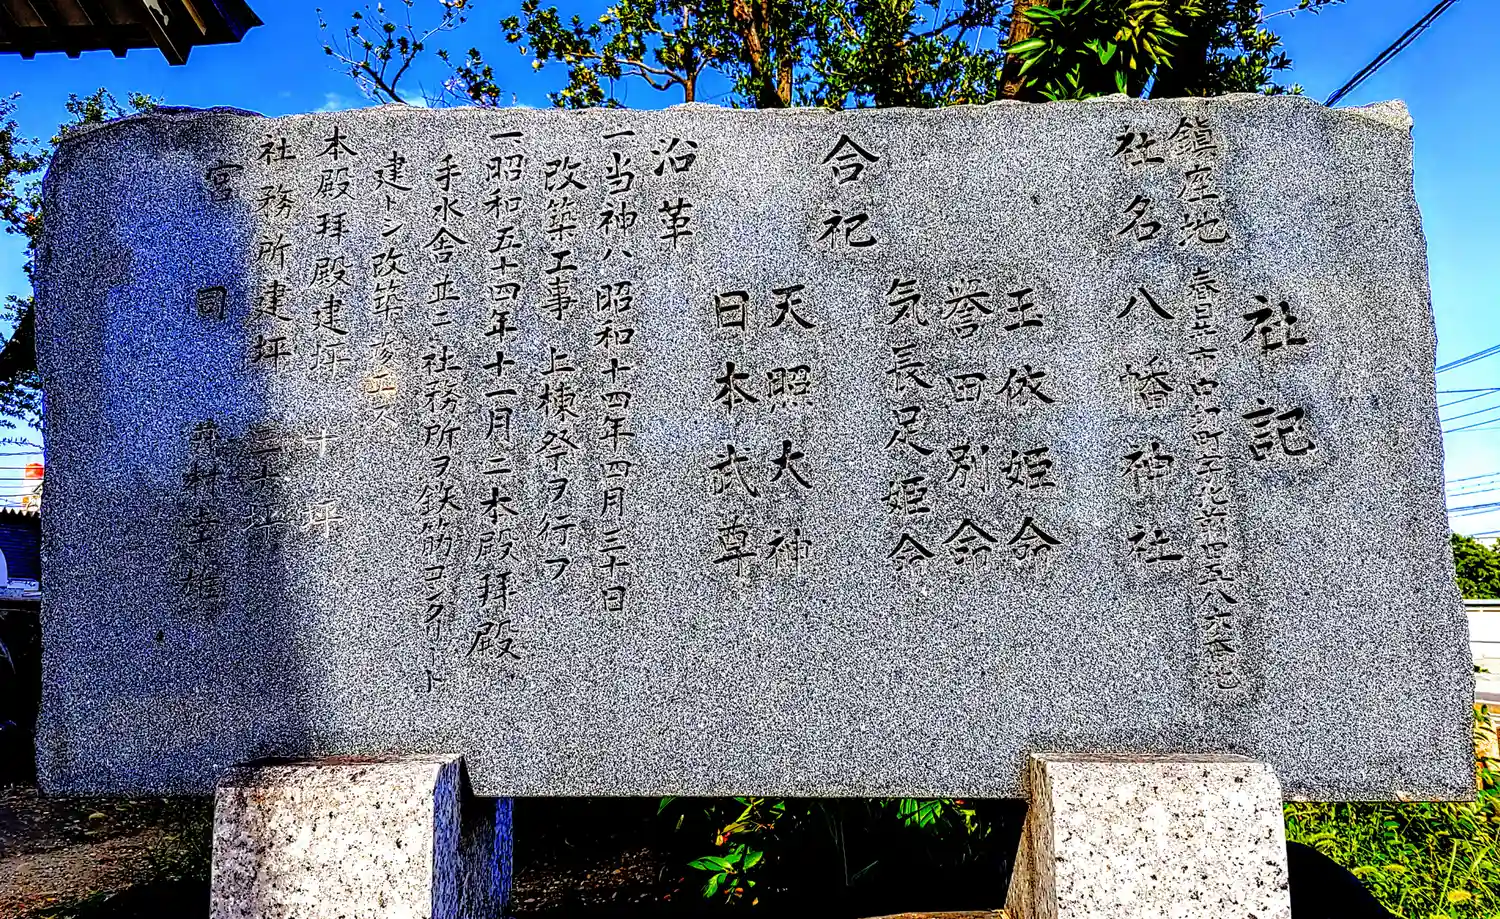 社記
鎮座地 春日井市
社名 八幡神社
玉依姫命
誉田別命
気長足姫命
合祀
天照大神
日本武尊
沿革
一当神ハ昭和十四年四月三十日
改築工事上棟祭ヲ行フ
一昭和五十四年十一月二本殿拝殿
手水舎並ニ社務所ヲ鉄筋コンクリート
建トシ改築竣工ス
本殿拝殿建坪 十坪
社務所建坪 三十坪
宮司